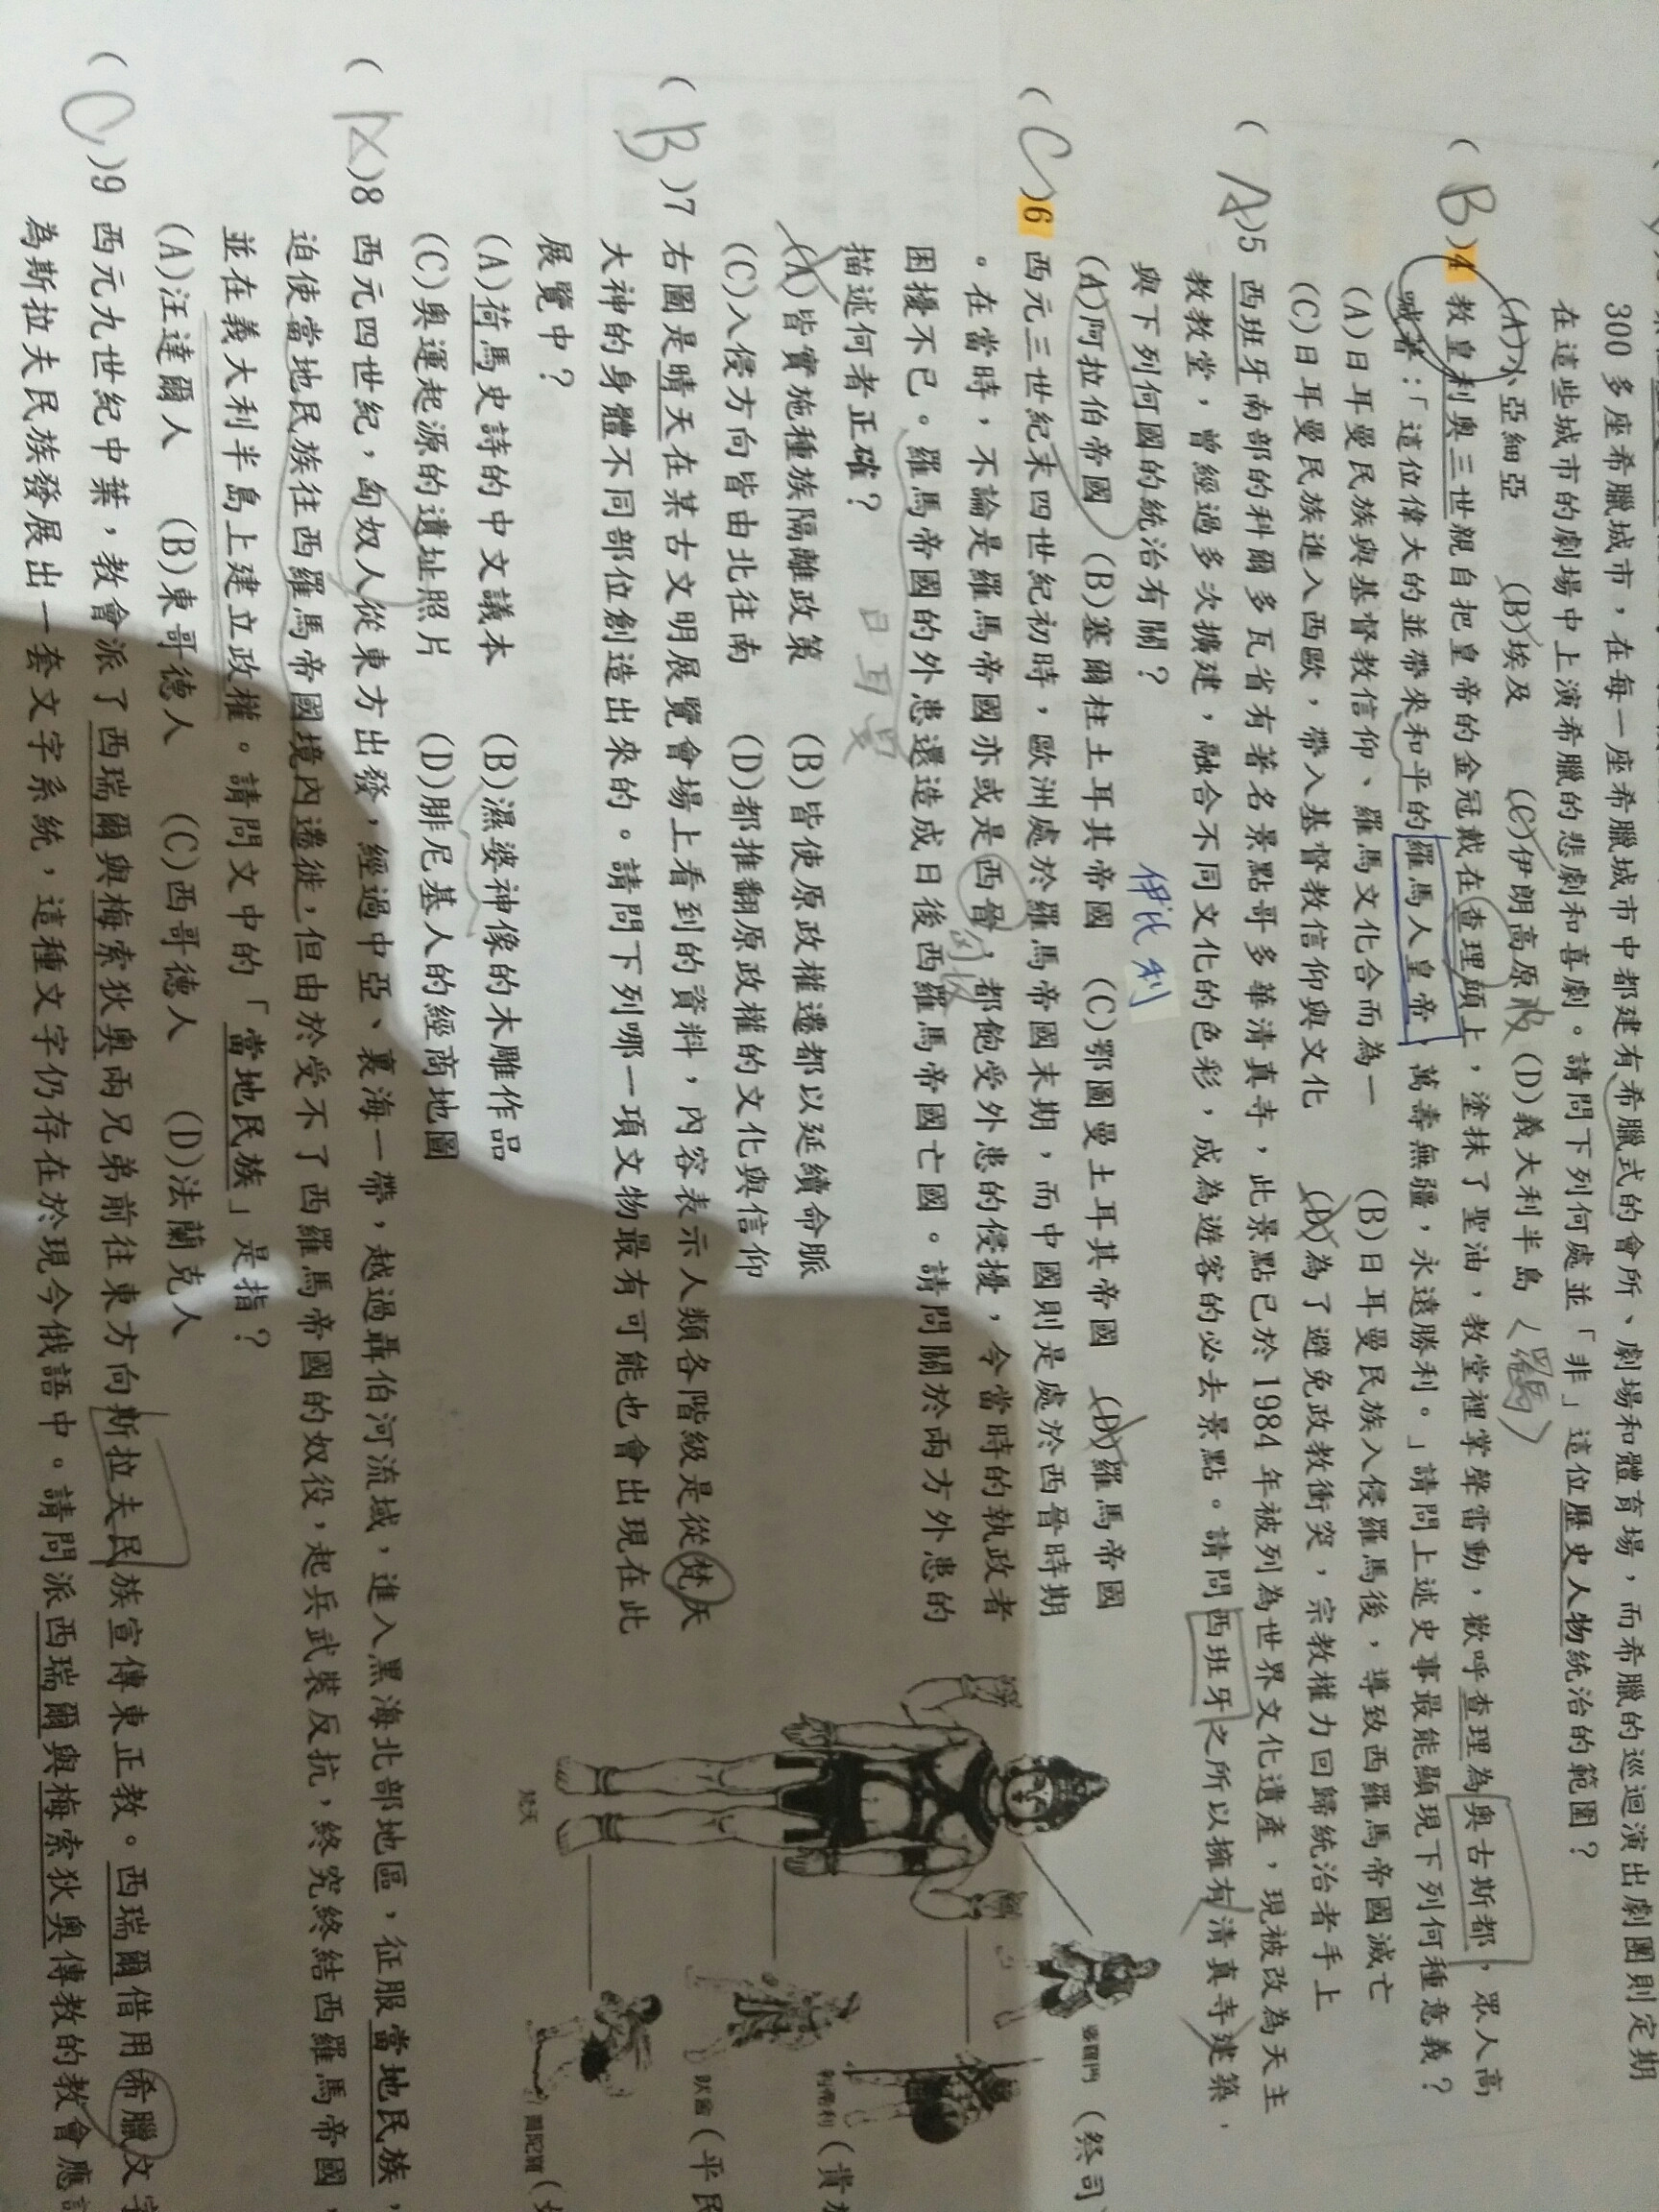 300 多座希臘城市，在每一座希臘城市中都建有希臘式的會所、劇場和體育場，而希臘的巡迴演出劇團則定期
在這些城市的劇場中上演希臘的悲劇和喜劇。請問下列何處並「非」這位歷史人物統治的範圍？
(A)小亞細亞 (B)埃及 (C)伊朗高原 波 (D)義大利半島 (羅馬)
( B )4 教皇利奧三世親自把皇帝的金冠戴在查理頭上，塗抹了聖油，教堂裡掌聲雷動，歡呼查理為奧古斯都，眾人高
喊著：「這位偉大的並帶來和平的羅馬人皇帝，萬壽無疆，永遠勝利。」請問上述史事最能顯現下列何種意義？
(A)日耳曼民族與基督教信仰、羅馬文化合而為一 (B)日耳曼民族入侵羅馬後，導致西羅馬帝國滅亡
(C)日耳曼民族進入西歐，帶入基督教信仰與文化 (D)為了避免政教衝突，宗教權力回歸統治者手上
( A )5 西班牙南部的科爾多瓦省有著名景點哥多華清真寺，此景點已於 1984 年被列為世界文化遺產，現被改為天主
教教堂，曾經過多次擴建，融合不同文化的色彩，成為遊客的必去景點。請問西班牙之所以擁有清真寺建築，
與下列何國的統治有關？ 伊比利
(A)阿拉伯帝國 (B)塞爾柱土耳其帝國 (C)鄂圖曼土耳其帝國 (D)羅馬帝國
( C )6 西元三世紀末四世紀初時，歐洲處於羅馬帝國末期，而中國則是處於西晉時期
。在當時，不論是羅馬帝國亦或是西晉，都飽受外患的侵擾，令當時的執政者
困擾不已。羅馬帝國的外患還造成日後西羅馬帝國亡國。請問關於兩方外患的
描述何者正確？ 日耳曼
(A)皆實施種族隔離政策 (B)皆使原政權遷都以延續命脈
(C)入侵方向皆由北往南 (D)都推翻原政權的文化與信仰
( B )7 右圖是晴天在某古文明展覽會場上看到的資料，內容表示人類各階級是從梵天
大神的身體不同部位創造出來的。請問下列哪一項文物最有可能也會出現在此
展覽中？
(A)荷馬史詩的中文議本 (B)濕婆神像的木雕作品
(C)奧運起源的遺址照片 (D)腓尼基人的經商地圖
梵天
婆羅門（祭司）
剎帝利（貴
吠舍（平民
首陀羅（
( )8 西元四世紀，匈奴人從東方出發，經過中亞、裏海一帶，越過聶伯河流域，進入黑海北部地區，征服當地民族，
迫使當地民族往西羅馬帝國境內遷徙，但由於受不了西羅馬帝國的奴役，起兵武裝反抗，終究終結西羅馬帝國，
並在義大利半島上建立政權。請問文中的「當地民族」是指？
(A)汪達爾人 (B)東哥德人 (C)西哥德人 (D)法蘭克人
( C )9 西元九世紀中葉，教會派了西瑞爾與梅索狄奧兩兄弟前往東方向斯拉夫民族宣傳東正教。西瑞爾借用希臘文字
為斯拉夫民族發展出一套文字系統，這種文字仍存在於現今俄語中。請問派西瑞爾與梅索狄奧傳教的教會應該